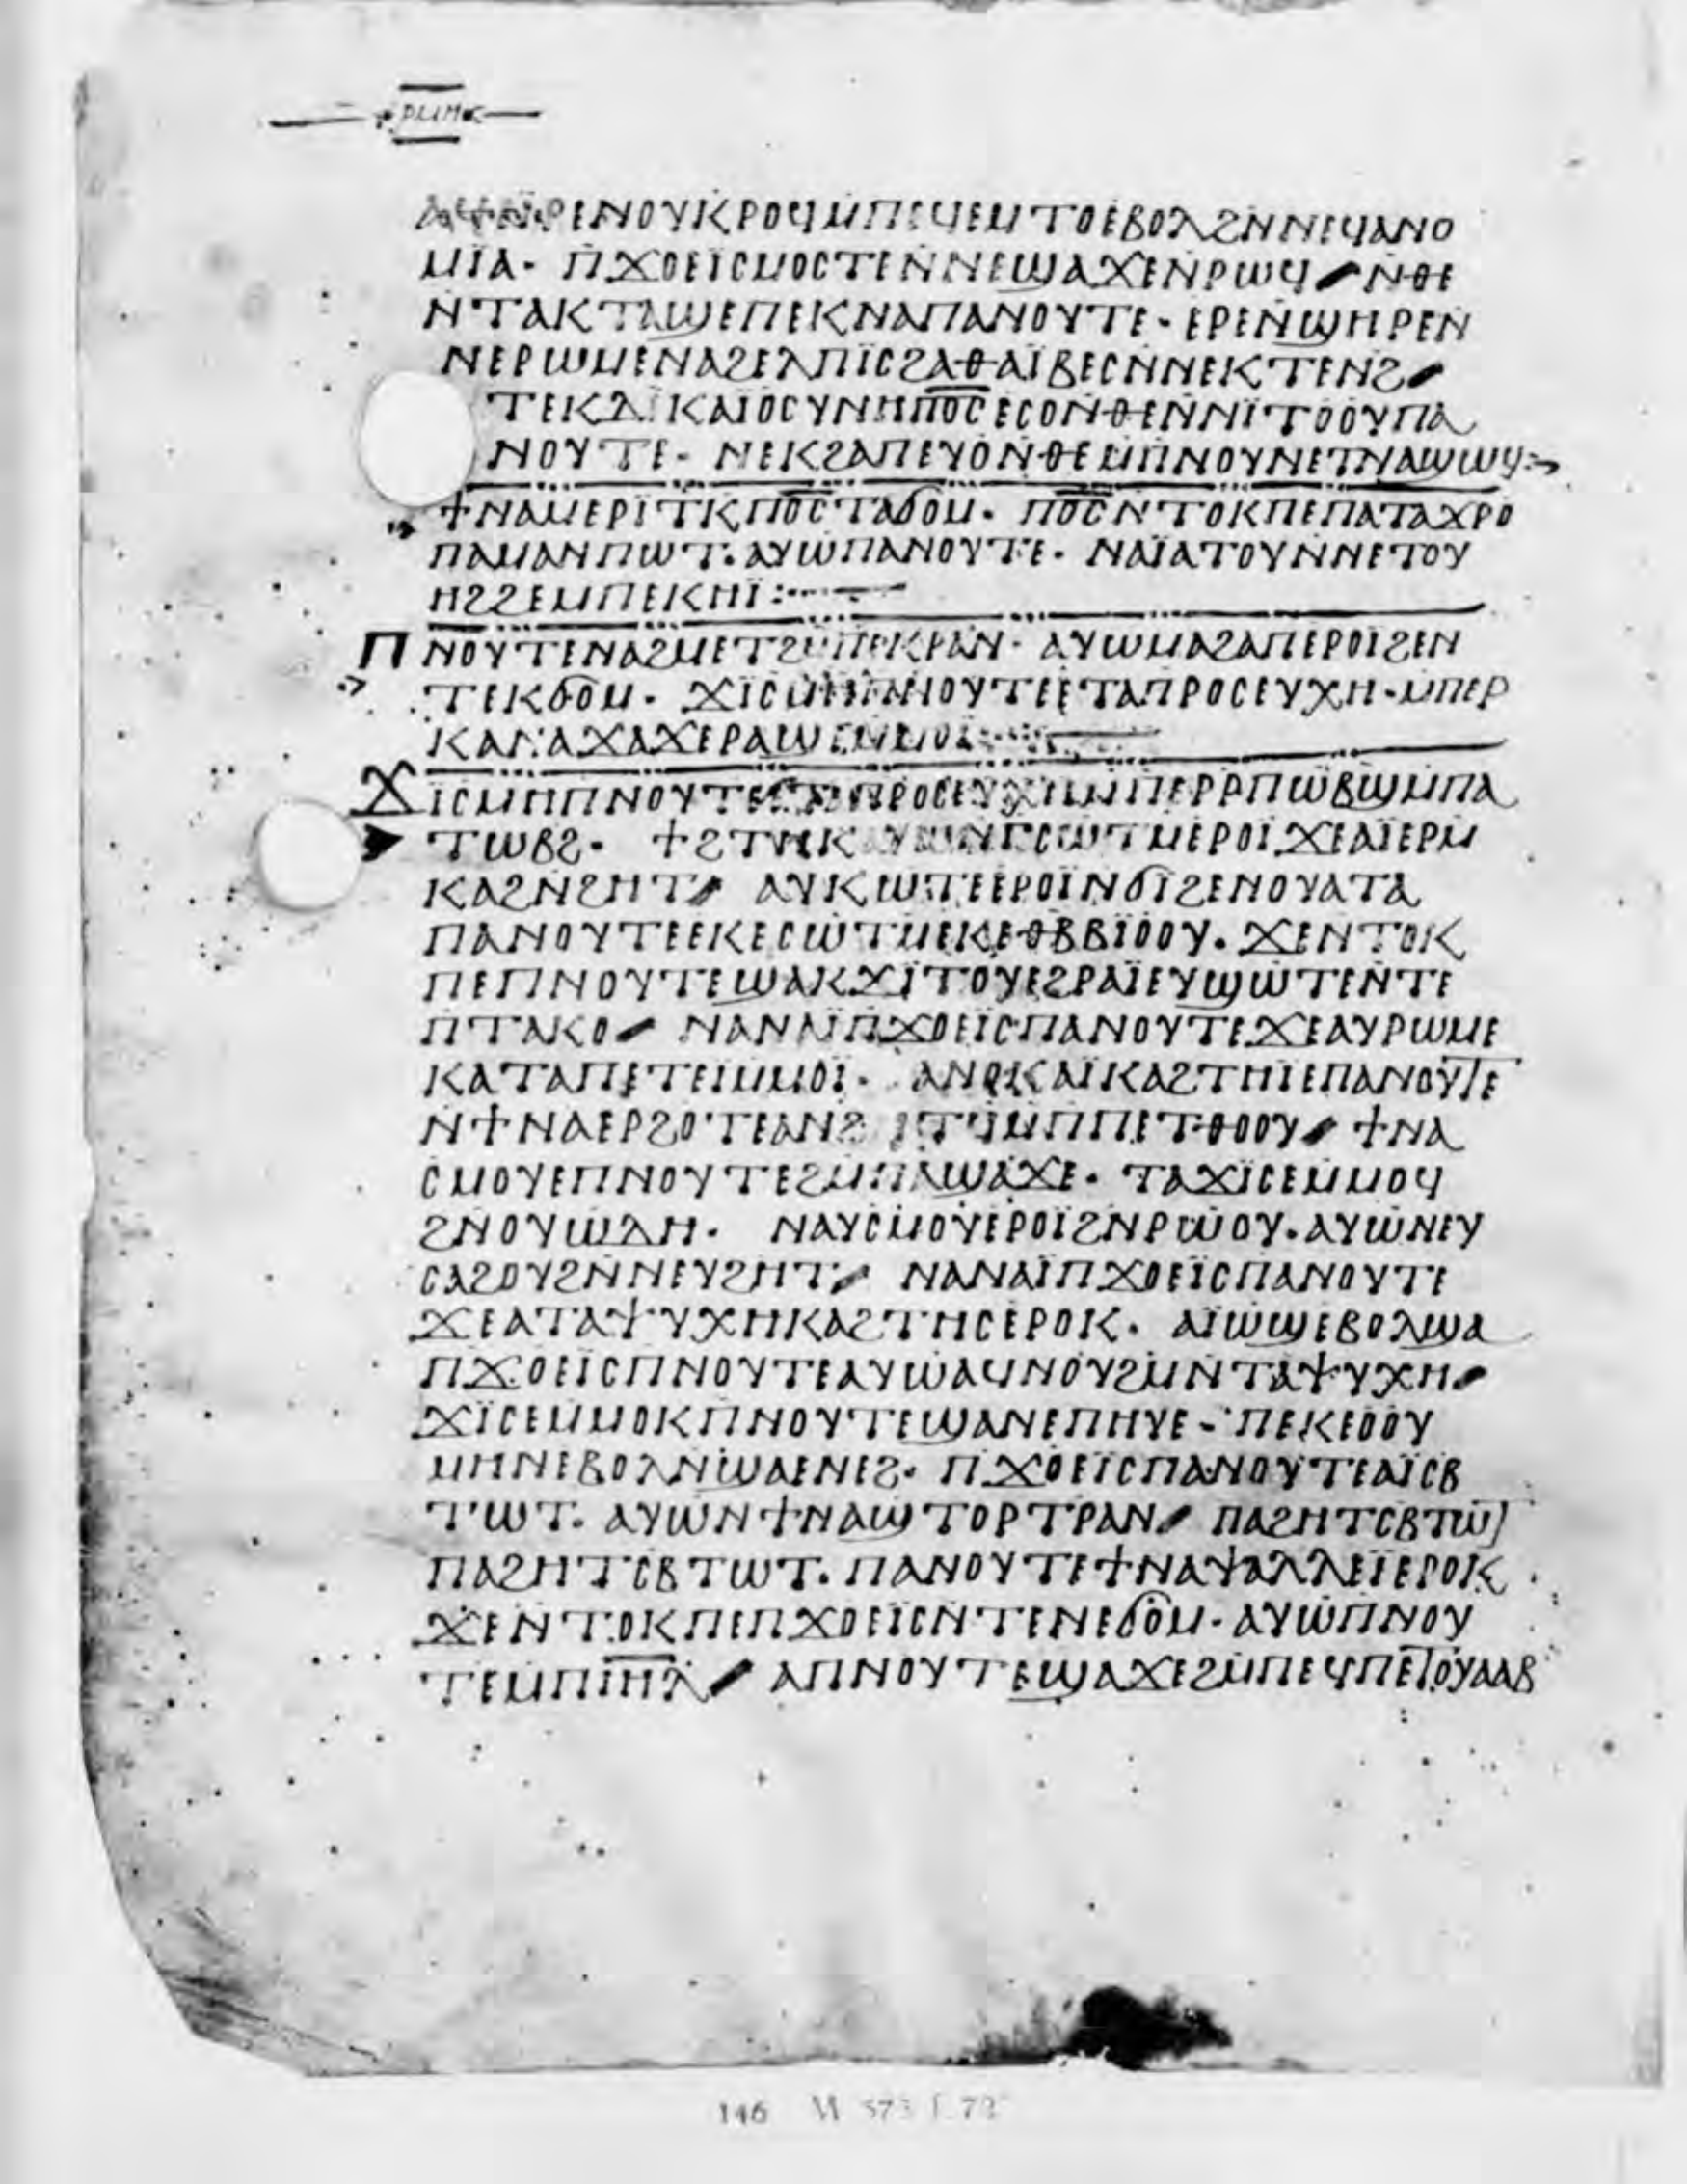 ⲣⲙⲏ
ⲁϥⲉⲓⲣⲉⲛⲟⲩⲕⲣⲟϥⲙ̇ⲡⲉϥⲉⲙⲧⲟⲉⲃⲟⲗϩⲛ̇ⲛⲉϥⲁⲛⲟ
ⲙⲓ̈ⲁ· ⲡ̇ϫⲟⲉⲓ̈ⲥⲙⲟⲥⲧⲉⲛ̇ⲛⲉϣⲁϫⲉⲛ̇ⲣⲱϥ ⸗ ⲛ̇ⲑⲉ
ⲛ̇ⲧⲁⲕⲧⲁϣⲉⲡⲉⲕⲛⲁⲡⲁⲛⲟⲩⲧⲉ· ⲉⲣⲉⲛ̇ϣⲏⲣⲉⲛ
ⲛⲉⲣⲱⲙⲉⲛⲁϩⲉⲗⲡⲓ̈ⲥϩⲁⲑⲁⲓ̈ⲃⲉⲥⲛ̇ⲛⲉⲕⲧⲉⲛϩ ⸗
ⲧⲉⲕⲇⲓⲕⲁⲓⲟⲥⲩⲛⲏⲡⲟ̅ⲥ̅ⲉⲥⲟⲛ̇ⲑⲉⲛ̇ⲛⲓ̈ⲧⲟⲟⲩⲡⲁ
ⲛⲟⲩⲧⲉ· ⲛⲉⲕϩⲁⲡⲉⲩⲟⲛ̇ⲑⲉⲙ̇ⲡⲛⲟⲩⲛⲉⲧⲛⲁϣⲱϥ:
ϯⲛⲁⲙⲉⲣⲓ̈ⲧⲕⲡⲟ̅ⲥ̅ⲧⲁϭⲟⲙ· ⲡⲟ̅ⲥ̅ⲛ̇ⲧⲟⲕⲡⲉⲡⲁⲧⲁϫⲣⲟ
ⲡⲁⲙⲁⲛⲡⲱⲧ· ⲁⲩⲱⲡⲁⲛⲟⲩⲧⲉ· ⲛⲁⲓ̈ⲁⲧⲟⲩⲛ̇ⲛⲉⲧⲟⲩ
ⲏϩϩⲉⲙⲡⲉⲕⲏⲓ̈:
ⲡⲛⲟⲩⲧⲉⲛⲁϩⲙⲉⲧϩⲙ̇ⲡⲉⲕⲣⲁⲛ· ⲁⲩⲱⲙⲁϩⲁⲡⲉⲣⲟⲓ̈ϩⲉⲛ
ⲧⲉⲕϭⲟⲙ· ϫⲓ̈ⲥⲙⲏⲡⲛⲟⲩⲧⲉⲉⲧⲁⲡⲣⲟⲥⲉⲩⲭⲏ·ⲙ̇ⲡⲉⲣ
ⲕⲁⲛⲁϫⲁϫⲉⲣⲁϣⲉⲙ̇ⲙⲟⲓ̈:
ϫⲓ̈ⲥⲙⲏⲡⲛⲟⲩⲧⲉⲉⲧⲁⲡⲣⲟⲥⲉⲩⲭⲏⲙ̇ⲡⲉⲣⲣ̇ⲡⲱⲃϣⲙ̇ⲡⲁ
ⲧⲱⲃϩ· ϯϩⲧⲏⲕ ⲛⲅ̇ⲥⲱⲧⲙⲉⲣⲟⲓ̈ϫⲉⲁⲓ̈ⲉⲣⲙ̇
ⲕⲁϩⲛ̇ϩⲏⲧ ⸗ ⲁⲩⲕⲱⲧⲉⲉⲣⲟⲓ̈ⲛ̇ϭⲓ̈ϩⲉⲛⲟⲩⲁⲧⲁ
ⲡⲁⲛⲟⲩⲧⲉⲉⲕⲉⲥⲱⲧⲙⲉⲕⲉⲑⲃⲃⲓ̈ⲟⲟⲩ· ϫⲉⲛⲧⲟⲕ
ⲡⲉⲡⲛⲟⲩⲧⲉϣⲁⲕϫⲓ̈ⲧⲟⲩⲉϩⲣⲁⲓ̈ⲉⲩϣⲱⲧⲉⲛ̇ⲧⲉ
ⲡ̇ⲧⲁⲕⲟ ⸗ ⲛⲁⲛⲁⲓ̈ⲡ̇ϫⲟⲉⲓ̈ⲥⲡⲁⲛⲟⲩⲧⲉϫⲉⲁⲩⲣⲱⲙⲉ
ⲕⲁⲧⲁⲡⲁⲧⲉⲙ̇ⲙⲟⲓ̈· ⲁⲛⲟⲕⲁⲓ̈ⲕⲁϩⲧⲏⲓ̈ⲉⲡⲁⲛⲟⲩⲧⲉ
ⲛ̇ϯⲛⲁⲉⲣϩⲟⲧⲉⲁⲛϩ ⲏⲧϥ̇ⲙ̇ⲡⲡⲉⲧⲑⲟⲟⲩ ⸗ ϯⲛⲁ
ⲥⲙⲟⲩⲉⲡⲛⲟⲩⲧⲉϩⲙ̇ⲡⲁϣⲁϫⲉ· ⲧⲁϫⲓ̈ⲥⲉⲙ̇ⲙⲟϥ
ϩⲛⲟⲩⲱⲇⲏ· ⲛⲁⲩⲥⲙⲟⲩⲉⲣⲟⲓ̈ϩⲛⲣⲱⲟⲩ·ⲁⲩⲱⲛⲉⲩ
ⲥⲁϩⲟⲩϩⲛ̇ⲛⲉⲩϩⲏⲧ ⸗ ⲛⲁⲛⲁⲓ̈ⲡϫⲟⲉⲓ̈ⲥⲡⲁⲛⲟⲩⲧⲉ
ϫⲉⲁⲧⲁⲯⲩⲭⲏⲕⲁϩⲧⲏⲥⲉⲣⲟⲕ· ⲁⲓ̈ⲱϣⲉⲃⲟⲗϣⲁ
ⲡ̇ϫⲟⲉⲓ̈ⲥⲡⲛⲟⲩⲧⲉⲁⲩⲱⲁϥⲛⲟⲩϩⲙ̇ⲛ̇ⲧⲁⲯⲩⲭⲏ ⸗
ϫⲓ̈ⲥⲉⲙ̇ⲙⲟⲕⲡⲛⲟⲩⲧⲉϣⲁⲛⲉⲡⲏⲩⲉ· ⲡⲉⲕⲉⲟⲟⲩ
ⲙⲏⲛⲉⲃⲟⲗⲛ̇ϣⲁⲉⲛⲉϩ· ⲡ̇ϫⲟⲉⲓ̈ⲥⲡⲁⲛⲟⲩⲧⲉⲁⲓ̈ⲥⲃ
ⲧⲱⲧ· ⲁⲩⲱⲛ̇ϯⲛⲁϣⲧⲟⲣⲧⲣⲁⲛ ⸗ ⲡⲁϩⲏⲧⲥⲃⲧⲱⲧ
ⲡⲁϩⲏⲧⲥⲃⲧⲱⲧ· ⲡⲁⲛⲟⲩⲧⲉϯⲛⲁⲯⲁⲗⲗⲉⲓ̈ⲉⲣⲟⲕ
ϫⲉⲛ̇ⲧⲟⲕⲡⲉⲡϫⲟⲉⲓ̈ⲥⲛ̇ⲧⲉⲛⲉϭⲟⲙ· ⲁⲩⲱⲡⲛⲟⲩ
ⲧⲉⲙ̇ⲡⲓ̅ⲏ̅ⲗ̅ ⸗ ⲁⲡⲛⲟⲩⲧⲉϣⲁϫⲉϩⲙ̇ⲡⲉϥⲡⲉⲧⲟⲩⲁⲁⲃ
146 M 573 f. 72